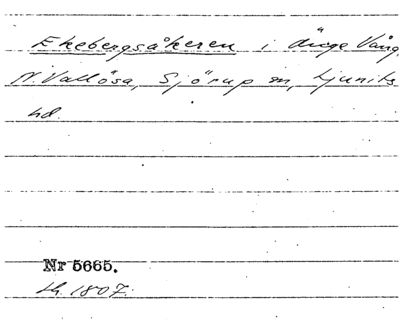 Ekebergsåkeren i änge Vång,
N. Vallösa, Sjörup sn, Ljunits
hd.
Nr 5665.
sk. 1807.